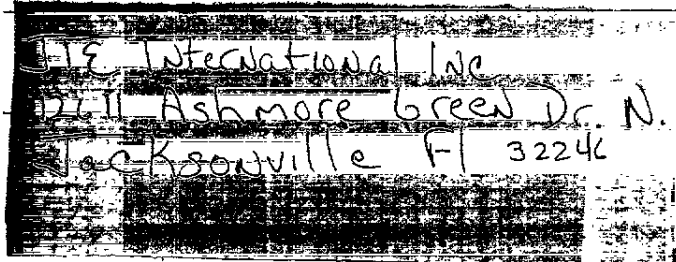 International Inc
Ashmore Green Dr. N.
Jacksonville Fl 32246